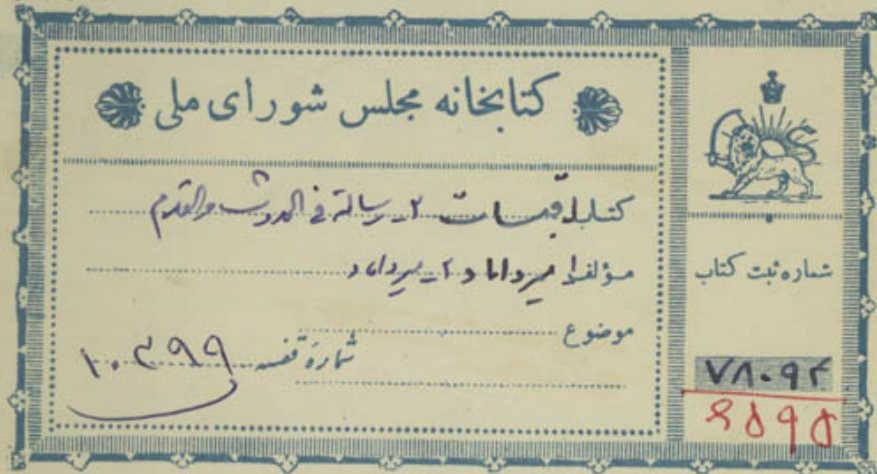 کتابخانه مجلس شورای ملی
کتاب ۱ـ قبسات ۲ـ رسالة فی الحدوث والقدم
مؤلف ۱ـ میرداماد ۲ـ میرداماد
موضوع
شمارهٔ قفسه ۱۰۳۹۹
شماره ثبت کتاب
۷۸۰۹۴